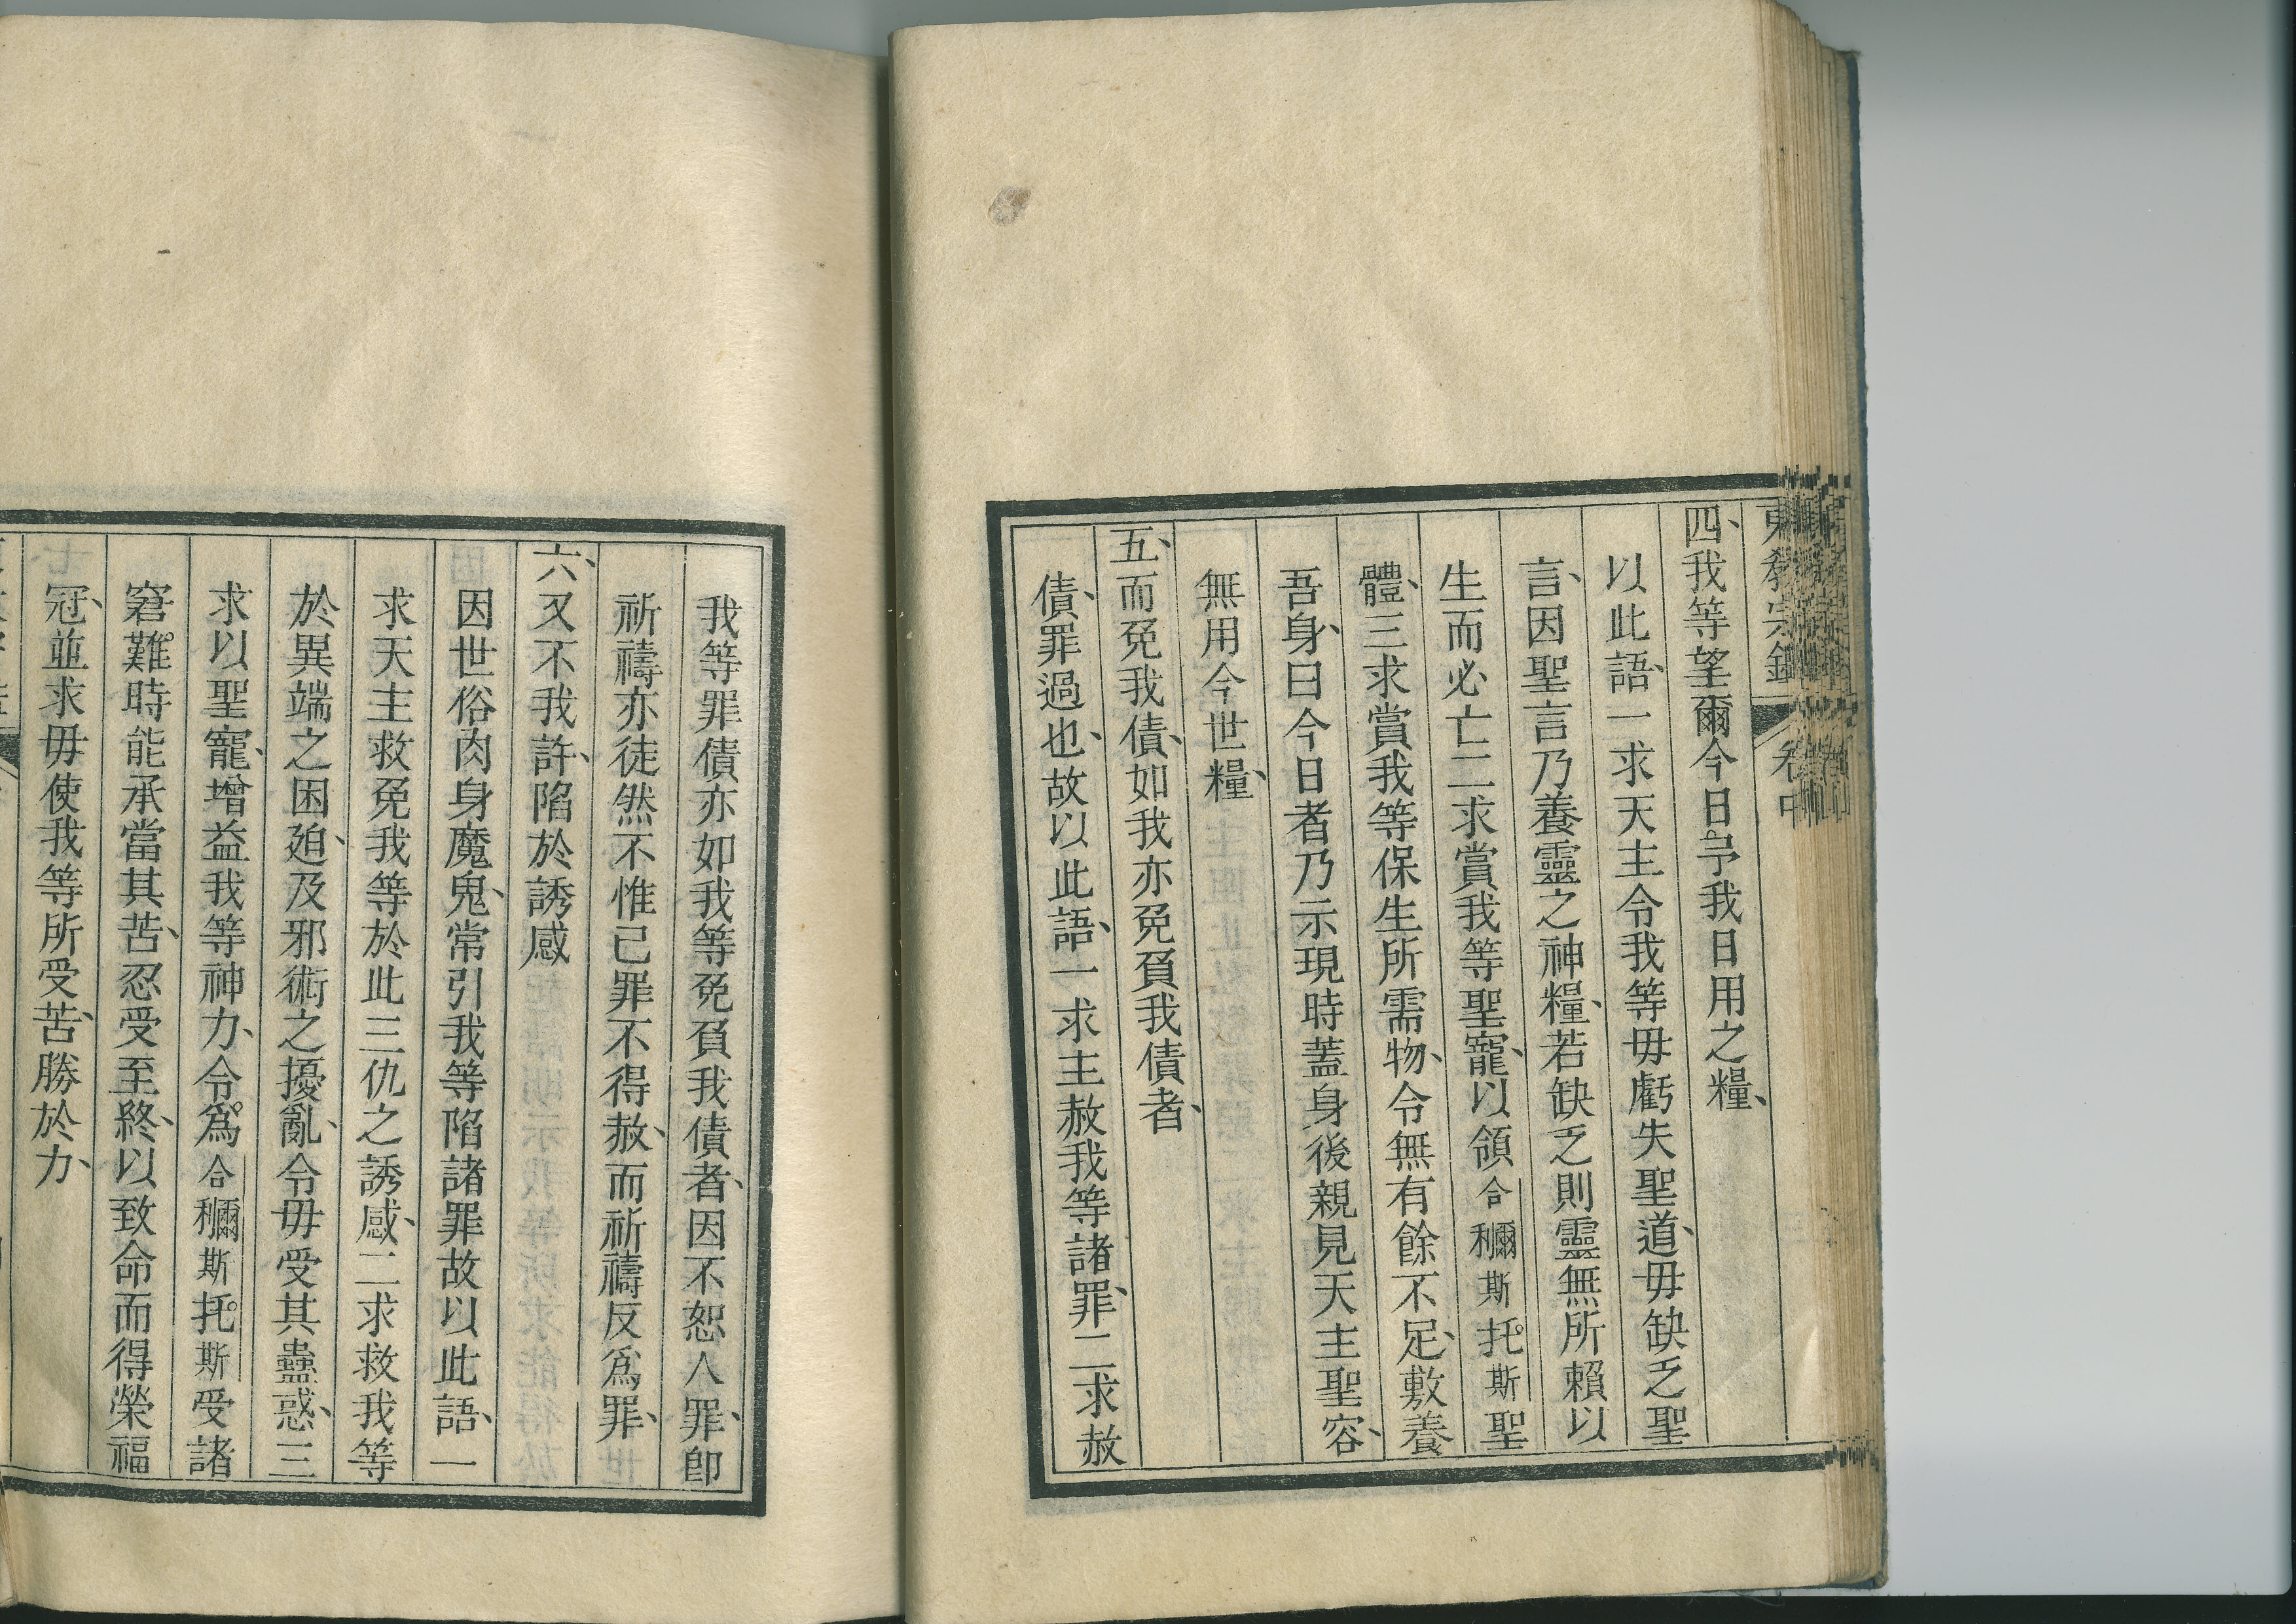 東教宗鑑 卷中
四、我等望爾今日予我日用之糧、
以此語、一求天主令我等毋虧失聖道、毋缺乏聖
言、因聖言乃養靈之神糧、若缺乏則靈無所賴以
生而必亡二求賞我等聖寵、以領合利爾斯托斯聖
體、三求賞我等保生所需物、令無有餘不足、敷養
吾身、曰今日者乃示現時蓋身後親見天主聖容、
無用今世糧、
五、而免我債、如我亦免負我債者、
債、罪過也、故以此語、一求主赦我等諸罪、二求赦
我等罪債亦如我等免負我債者、因不恕人罪、卽
祈禱亦徒然不惟己罪不得赦、而祈禱反爲罪、
六、又不我許、陷於誘感
因世俗肉身魔鬼、常引我等陷諸罪故以此語、一
求天主救免我等於此三仇之誘感、二求救我等
於異端之困廹、及邪術之擾亂、令毋受其蠱惑、三
求以聖寵、增益我等神力、令爲合利爾斯托斯受諸
窘難時能承當其苦、忍受至終、以致命而得榮福
冠、並求毋使我等所受苦、勝於力、